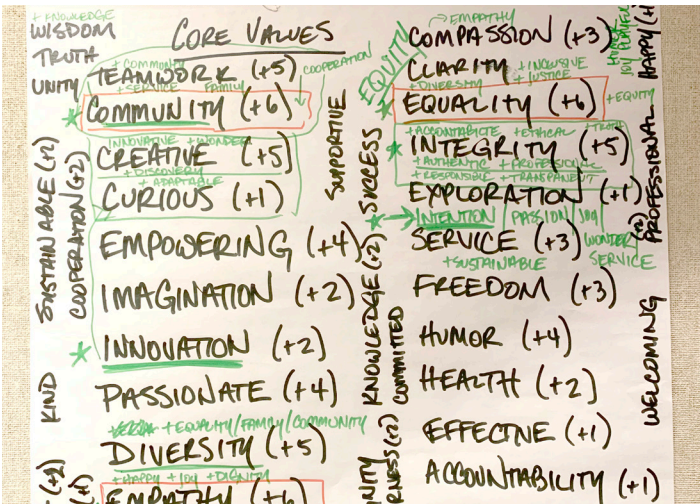 + KNOWLEDGE
WISDOM
TRUTH
UNITY
CORE VALUES
+ COMMUNITY
TEAMWORK (+5)
COOPERATION
+ SERVICE FAMILY
COMMUNITY (+6)
INNOVATIVE + WONDER
CREATIVE (+5)
+ DISCOVERY
+ ADAPTABLE
CURIOUS (+1)
EMPOWERING (+4)
IMAGINATION (+2)
INNOVATION (+2)
PASSIONATE (+4)
+ EQUALITY/FAMILY/COMMUNITY
DIVERSITY (+5)
+ HAPPY + JOY + DIGNITY
EMPATHY (+6)
SUSTAINABLE (+2)
COOPERATION (+2)
KIND
(+2)
(+1)
SUPPORTIVE
SUCCESS
KNOWLEDGE (+2)
COMMITTED
EQUITY
→ EMPATHY
COMPASSION (+3)
CLARITY
+ INCLUSIVE
+ JUSTICE
+ DIVERSITY
EQUALITY (+6)
+ EQUITY
+ ACCOUNTABILTE + ETHICAL + TRUTH
INTEGRITY (+5)
+ AUTHENTIC + PROFESSIONAL
+ RESPONSIBLE + TRANSPARENT
EXPLORATION (+1)
INTENTION PASSION JOY
SERVICE (+3)
WONDER
SERVICE
+ SUSTAINABLE
FREEDOM (+3)
HUMOR (+4)
HEALTH (+2)
EFFECTIVE (+1)
ACCOUNTABILITY (+1)
JOY PLAYFUL
HAPPY (+
PROFESSIONAL
(+2)
WELCOMING